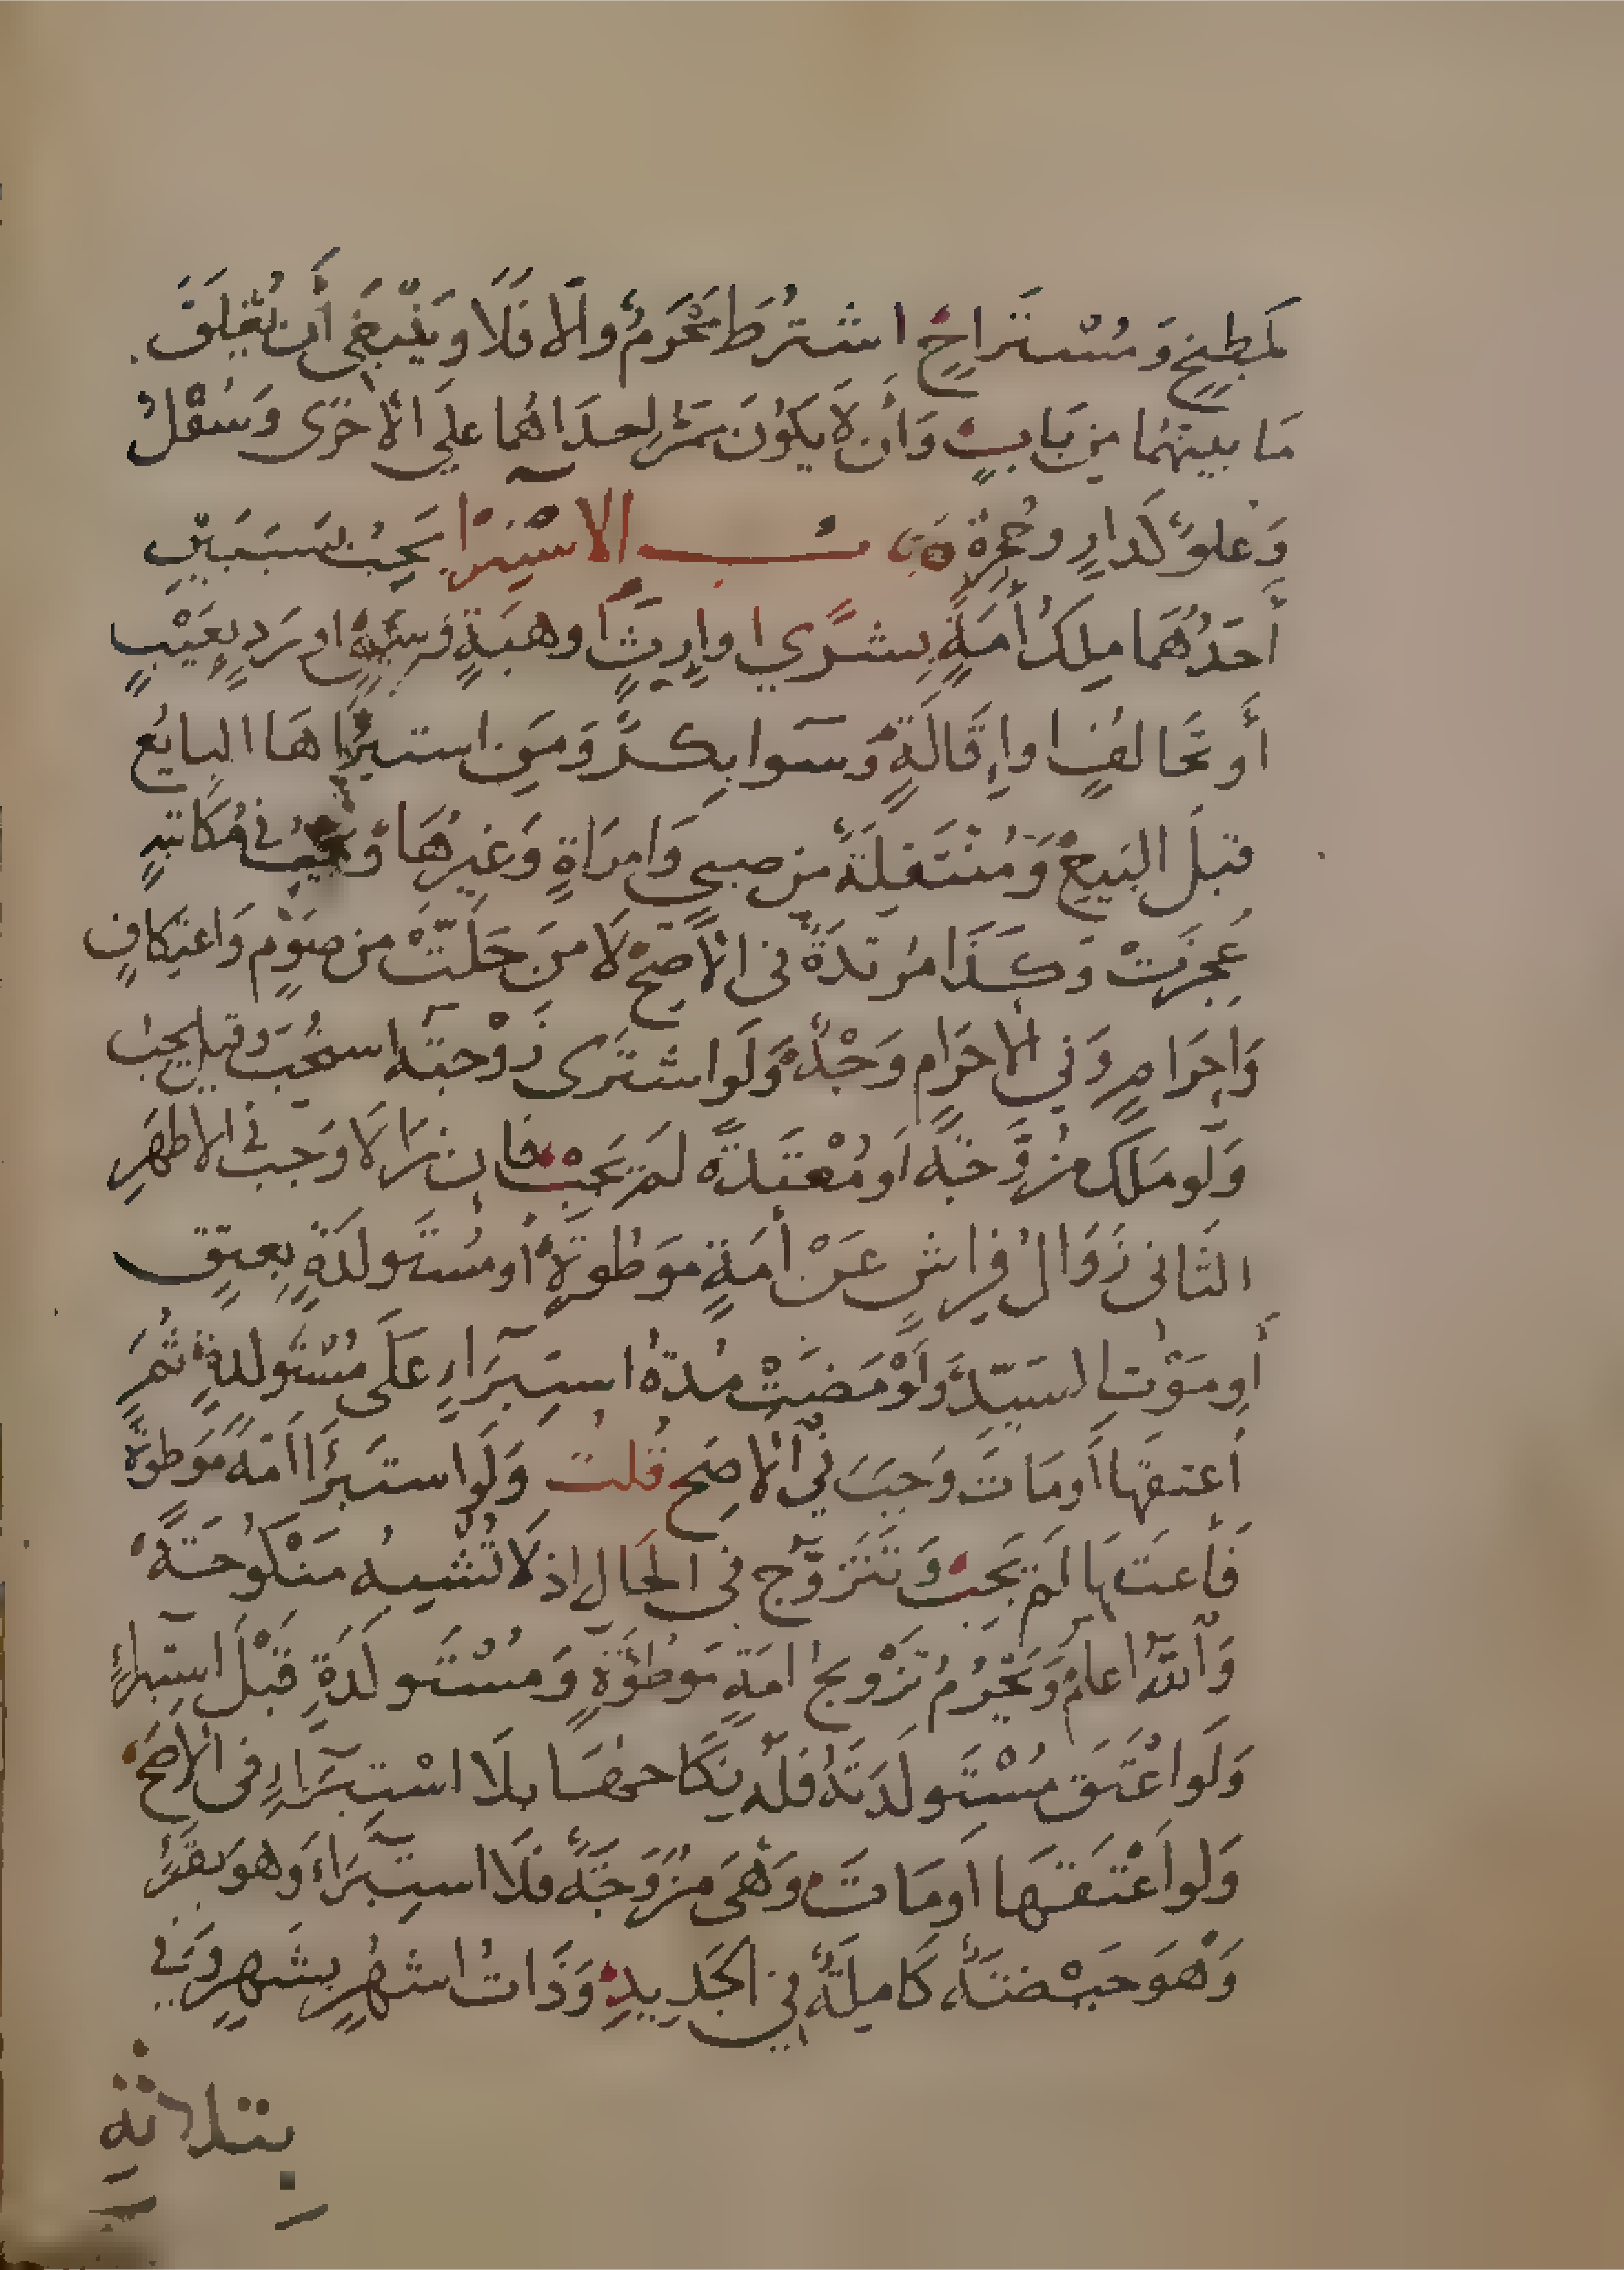 كمطبخ وَمُسْتَراحٍ اشتُرطَ مَحْرَمٌ وإلّا فَلَا وَيَنْبَغى أَن تُغْلَقَ
مَا بينهُما مِن بَابٍ وَأَن لَا يَكُونَ مَمَرُّ احدَاهُما علَى الأُخْرَى وَسُفْلُ
وَعلوٌ كَدارٍ وحُجرةٍ بَابُ الاسْتبْرَا يَجِبُ بسَبَبَيْنِ
أحَدُهُمَا مِلكُ أَمَةٍ بِشرًي او إرثٍ او هبَةٍ او سَبْيٍ او رَدٍّ بِعَيْبٍ
أو تَحَالفٍ او إقَالَةٍ وَسَوا بِكرٌ وَمَنِ استبرَأهَا البايعُ
قبلَ البَيعِ وَمُنْتَقِلَةٌ من صبىٍ وَامرَاةٍ وَغيرُهَا وَيجِبُ فى مُكاتبَةٍ
عُجِزَتْ وَكَذَا مُرتدَةٌ فى الأَصَحّ لَا مَن حَلّتْ من صَوْمٍ وَاعتِكافٍ
وَاحرَامٍ وَفي الاحرَامِ وَجْهٌ وَلَو اشتَرَى زَوْجتَهُ استُحُبَّ وَقيلَ يَجِبُ
وَلَو مَلَكَ مُزوَّجَةً اَو مُعْتَدةً لَم يَجِبْ فان زَالَا وَجَبَ فى الاظهَرِ
الثَانى زَوَالُ فِراشٍ عَنْ أمَةٍ مَوطُوءةٍ أو مُستَولدَةٍ بِعتقٍ
أو مَوْتِ السَيّدِ وَلَوْ مَضَتْ مُدةُ استِبرَاءٍ عَلَى مُسْتَولدةٍ ثُمَّ
أعتقَها أَو مَاتَ وَجَبَ فى الأصَح قُلتُ وَلَو استَبرَأَ أمَةً مَوطوءةً
فَأعتَقها لَم يَجِبْ وَتَتَزَوَّج فى الحَالِ إذ لَا تُشبِهُ مَنْكُوحَةً
وَاللهُ اعلمُ وَيَحْرُمُ تَزْويجُ امَةٍ مَوطُوءَةٍ وَمُسْتَولَدَةٍ قَبْلَ استِبراءٍ
وَلَو اعْتَقَ مُسْتَولَدَتَهُ فلَهُ نِكَاحهَا بلَا اسْتِبرَاءٍ فى الأصَحّ
وَلو اَعْتَقَهَا اَو مَاتَ وَهْىَ مُزَوَّجَةٌ فلَا استِبرَاءَ وَهوَ بقُرْءٍ
وَهْوَ حَيْضَةٌ كَامِلَةٌ فى الجَدِيدِ وَذَاتُ اشهُرٍ بِشَهرٍ وَفى
بثلاثةٍ